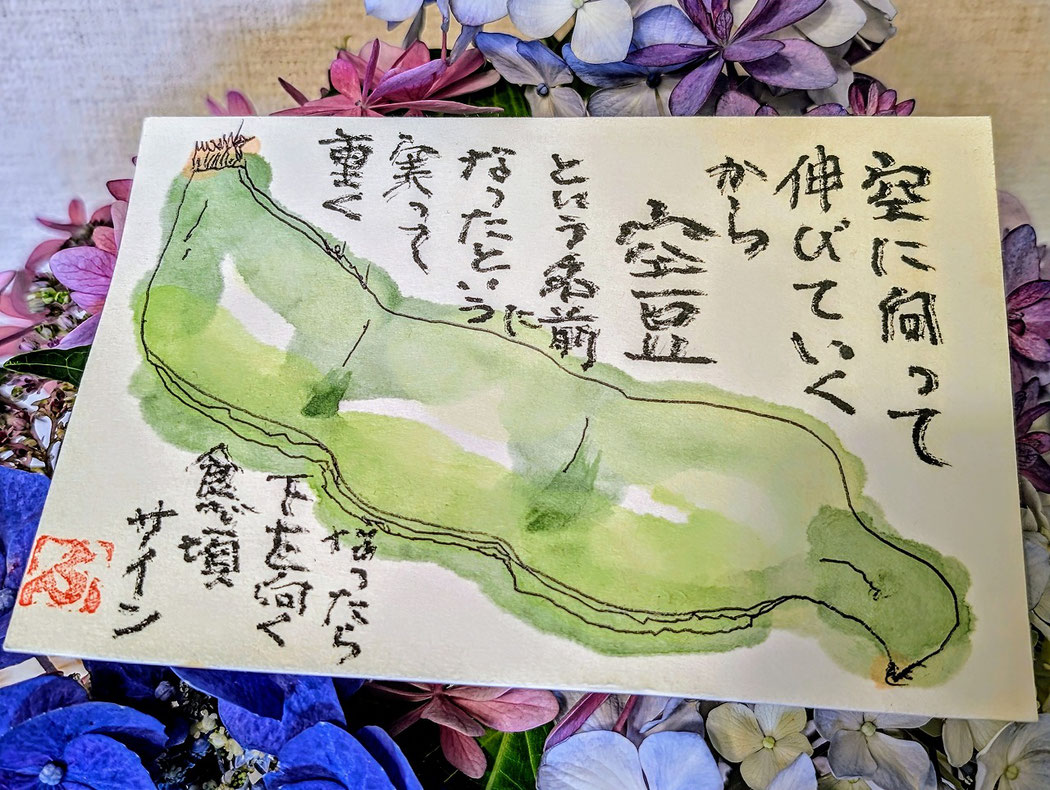 空に向って
伸びていく
から
空豆
という名前に
なったという
実って
重く
なったら
下を向く
食べ頃
サイン
ふ